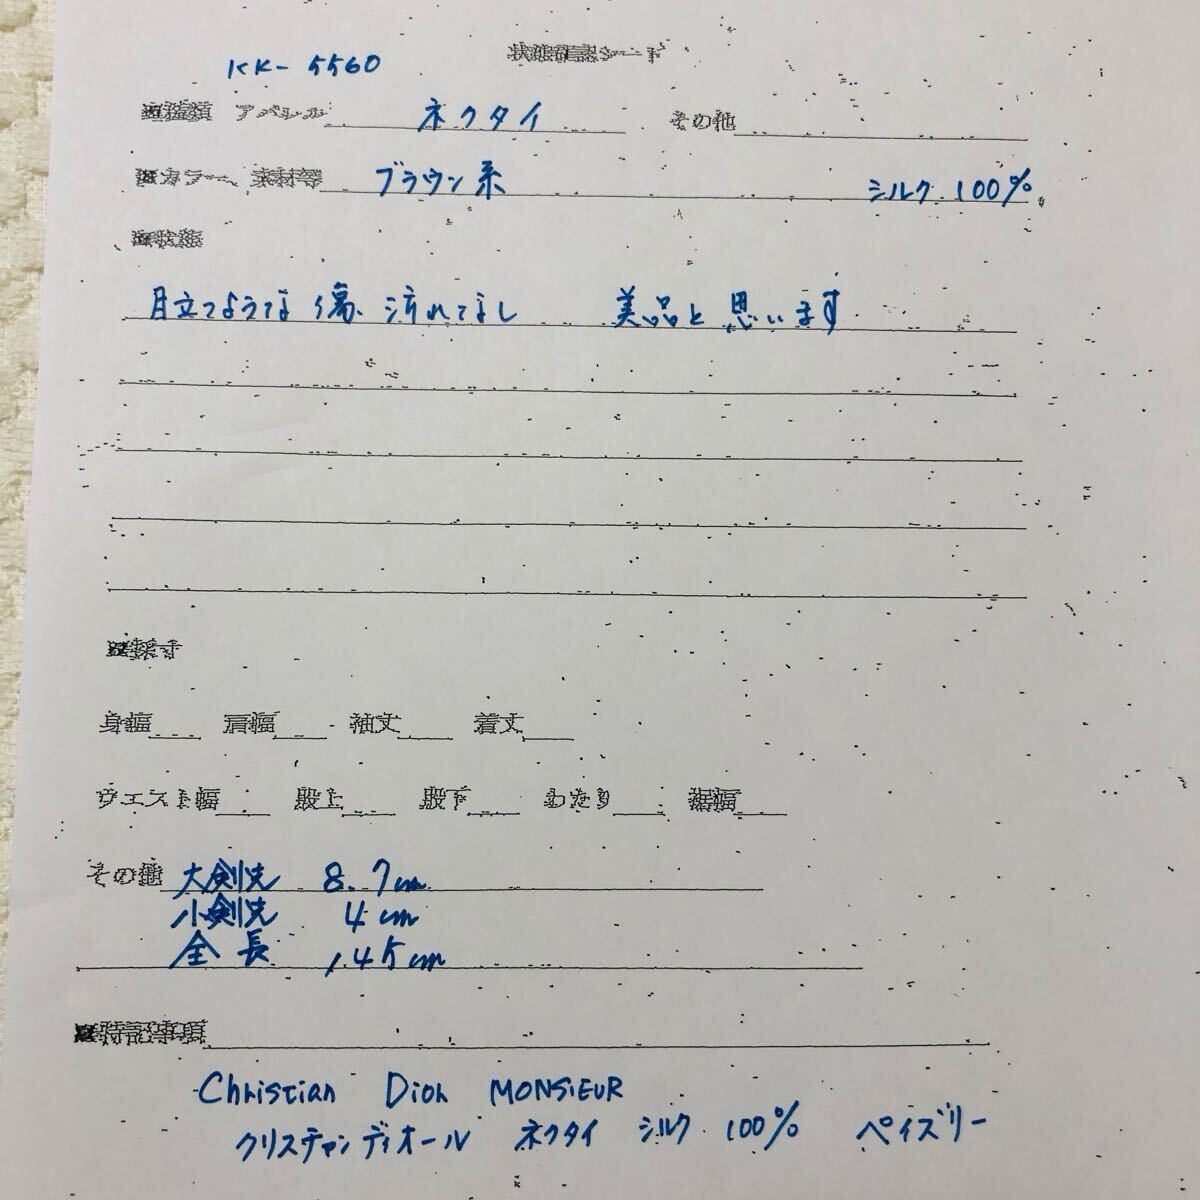 状態確認シート
KK-5560
■種類 アパレル ネクタイ その他
■カラー、素材等 ブラウン系 シルク 100%
■状態
目立つような傷、汚れてなし 美品と思います
■採寸
身幅 肩幅 袖丈 着丈
ウエスト幅 股上 股下 わたり 裾幅
その他 大剣先 8.7cm
小剣先 4cm
全長 145cm
■特記事項
Christian Dior MONSIEUR
クリスチャンディオール ネクタイ シルク 100% ペイズリー